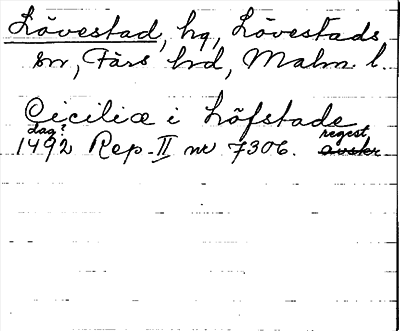 Lövestad, hg, Lövestads
sn, Färs hd, Malm. l.
Ciciliæ i Löfstade
dag? regest
1492 Rep. II nr 7306. avskr